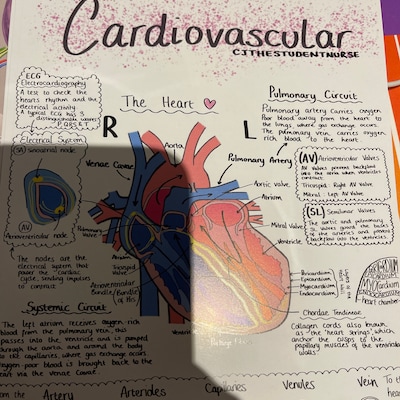 Cardiovascular
CJTHESTUDENTNURSE
ECG
Electrocardiography
A test to check the
hearts rhythm and the
electrical activity
A typical ECG has 3
distinguishable waves
P, QRS & T
Electrical System
(SA) Sinoatrial node
(AV)
Atrioventricular node
The nodes are the
electrical system that
power the "cardiac
cycle, sending impulses
to contract
Systemic Circuit
The left atrium receives oxygen rich
blood from the pulmonary vein, this
passes into the ventricle and is pumped
through the aorta and around the body
to the capillaries, where gas exchange occurs
oxygen poor blood is brought back to the
heart via the Venae Cavae.
The Heart
R
L
Aorta
Venae Cavae
Pulmonary Artery
Aortic valve
Atrium
Mitral Valve
Ventricle
Pulmonary
Valve
Atrium
Tricuspid
Valve
Atrioventricular
Bundle/Bundle
of His
Ventricle
Pericardium
Epicardium
Myocardium
Endocardium
Pulmonary Circuit
Pulmonary artery carries oxygen
Poor blood away from the heart to
the lungs where gas exchange occurs.
The pulmonary vein, carries oxygen
rich blood to the heart
(AV) Atrioventricular Valves
AV valves prevent backflow
into the atria when ventricles
contract.
Tricuspid: Right AV Valve
Mitral: Left AV Valve
(SL) Semilunar Valves
The aortic and pulmonary
SL valves guard the bases
of the arteries and prevent
backflow into the ventricles.
Heart chamber
Chordae Tendineae
Collagen cords also known
as the 'heart strings' which
anchor the cusps to the
papillary muscles of the ventricular
walls
Artery
Arterioles
Capillaries
Venules
Vein
To the